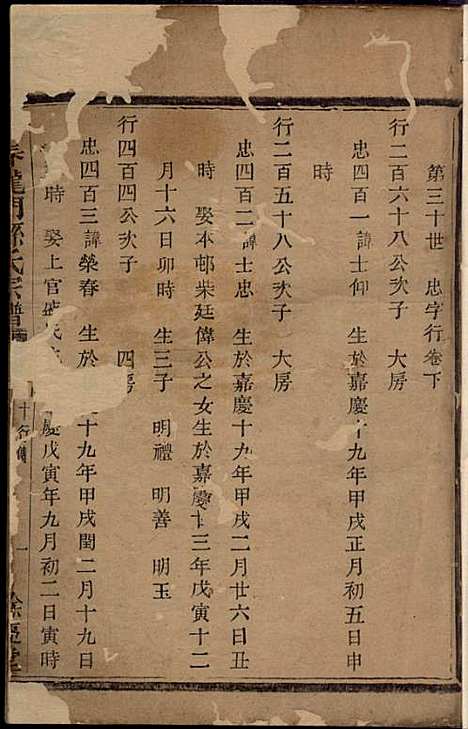 第三十世 忠字行卷下
行二百六十八公次子 大房
忠四百一諱士仰 生於嘉慶十九年甲戌正月初五日申
時
行二百五十八公次子 大房
忠四百二諱士忠 生於嘉慶十九年甲戌二月廿六日丑
時 娶本邨柴廷偉公之女生於嘉慶廿三年戊寅十二
月十六日卯時 生三子 明禮 明善 明玉
行四百四公次子 四房
忠四百三諱榮春 生於 十九年甲戌閏二月十九日
時 娶上官 氏 慶戊寅年九月初二日寅時
龍門 氏宗譜 十 行傳 一